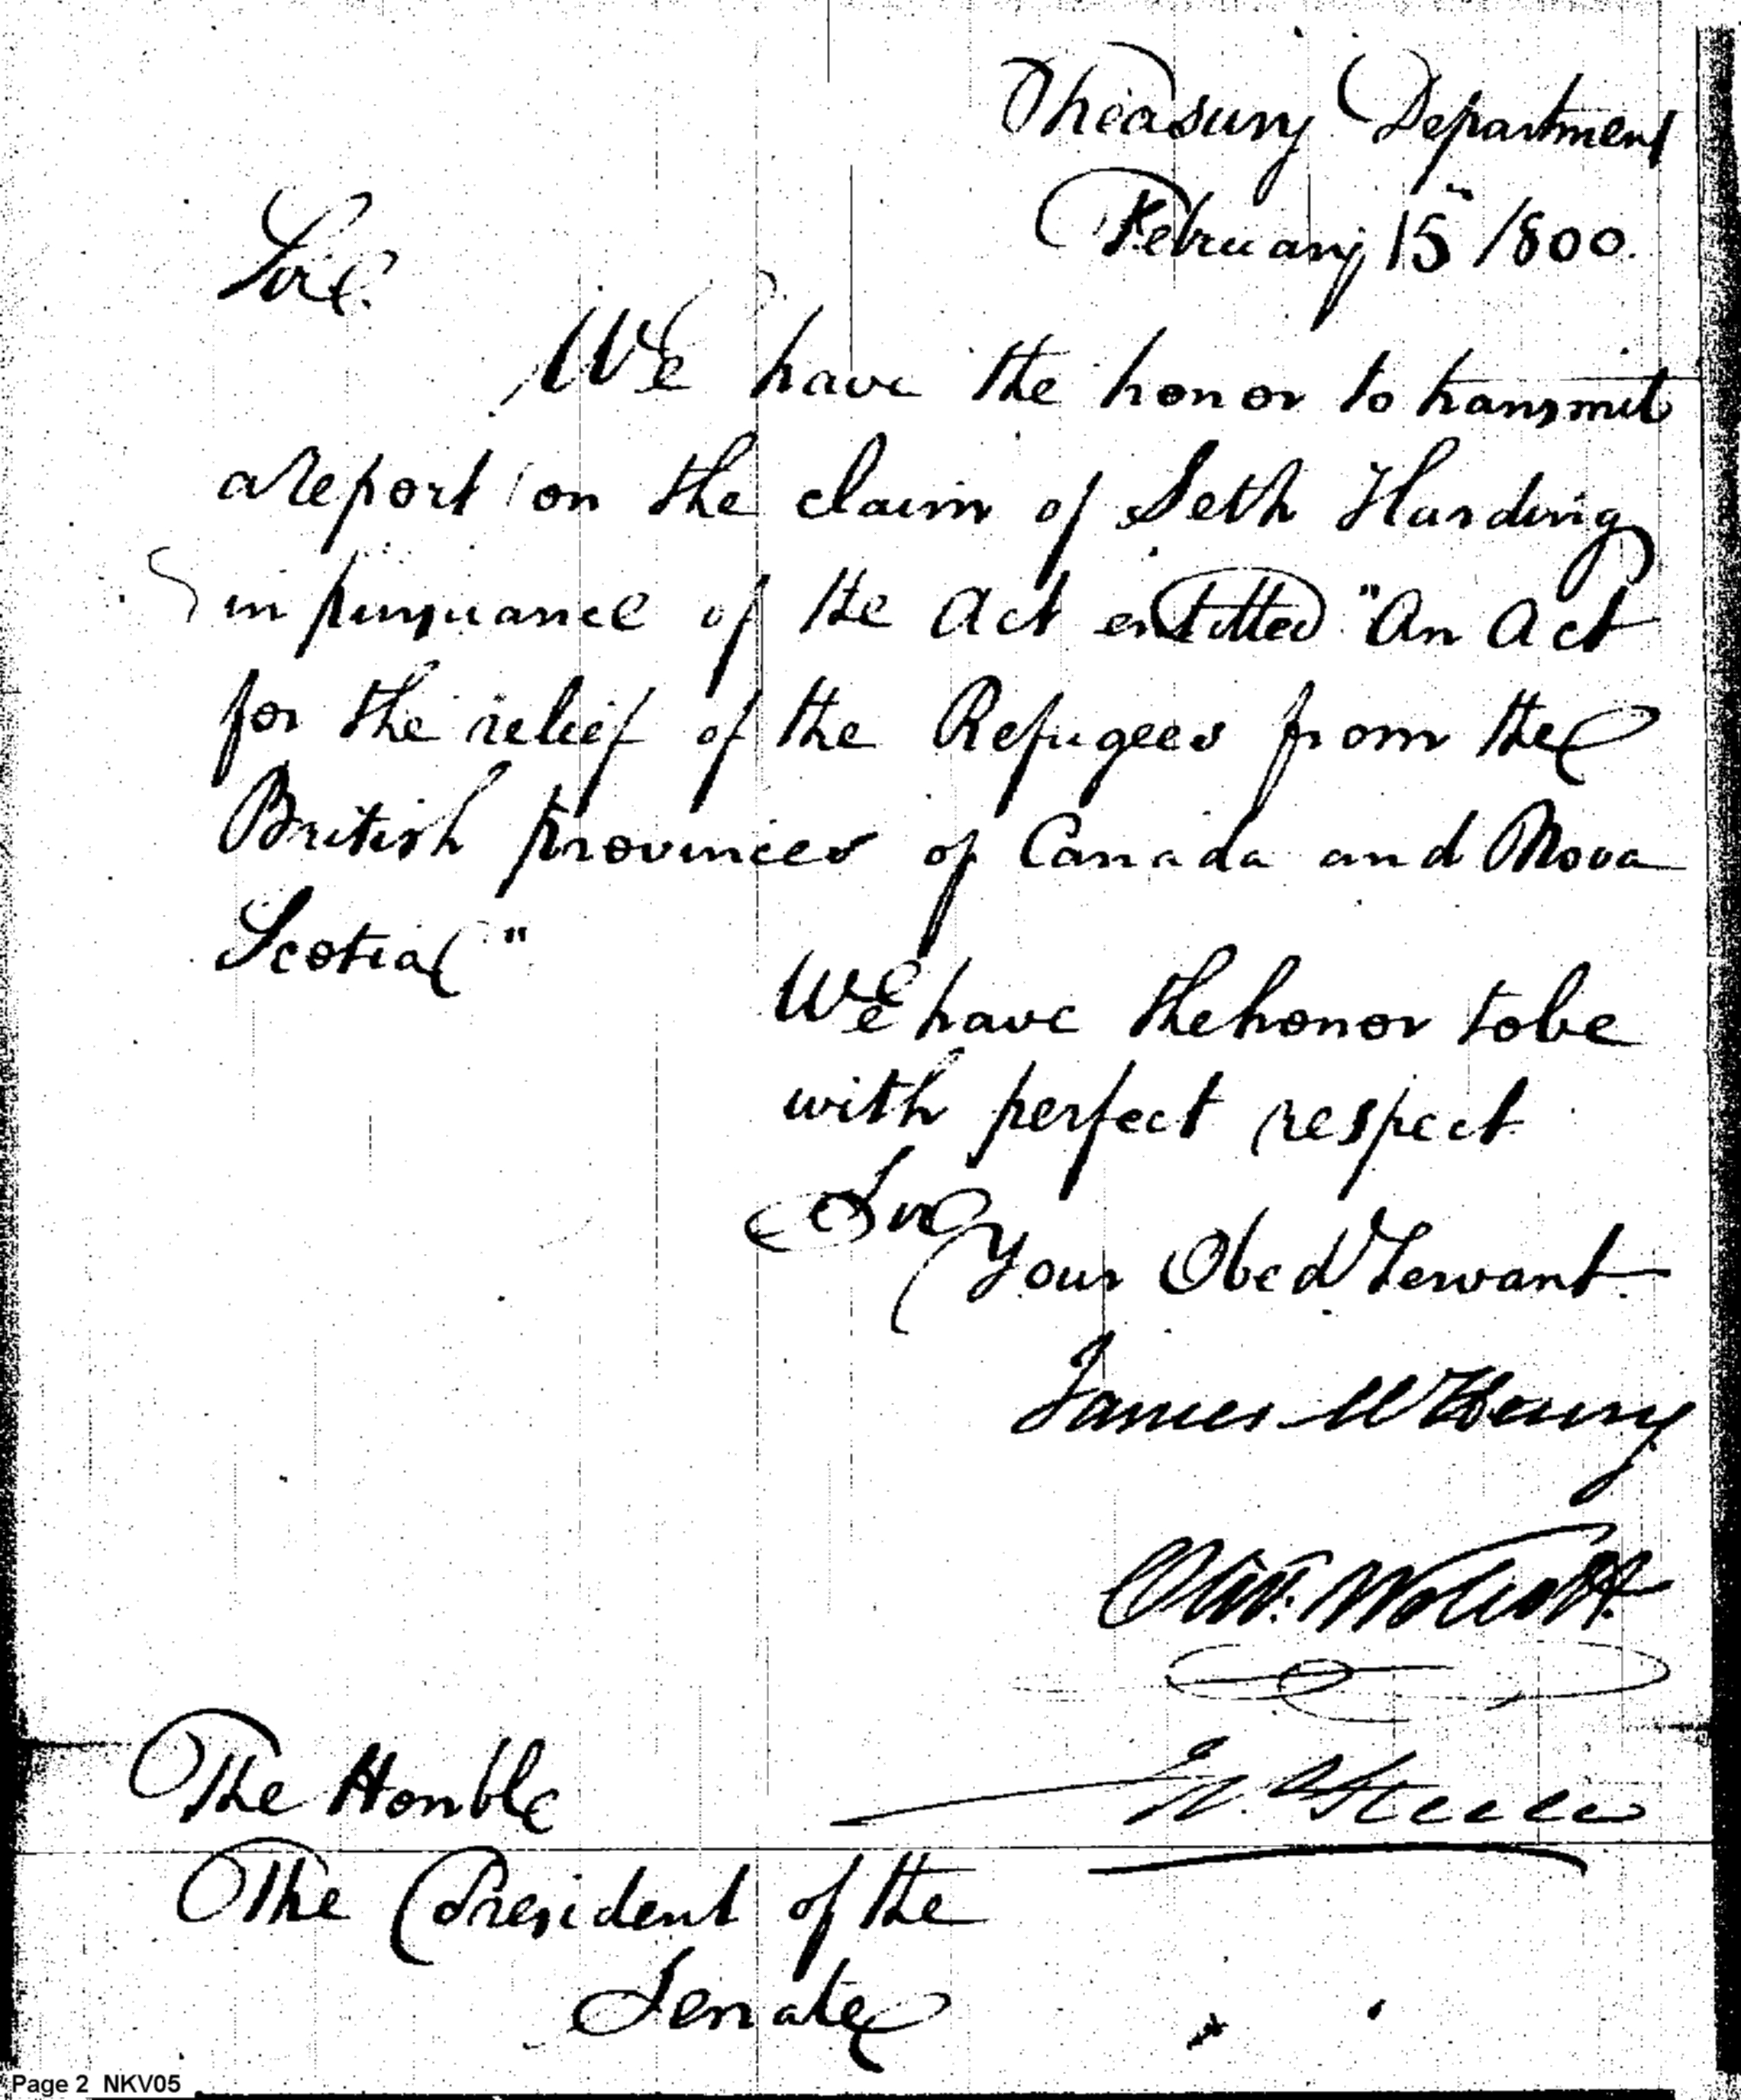 Treasury Department
February 15th 1800.
Sir.
We have the honor to transmit
a report on the claim of Seth Harding
in pursuance of the Act entitled "An Act
for the relief of the Refugees from the
British provinces of Canada and Nova
Scotia"
We have the honor to be
with perfect respect
Sir
Your Obed Servant
James McHenry
Oliv: Wolcott
Jn. Steele
The Honble
The President of the
Senate
Page 2 NKV05